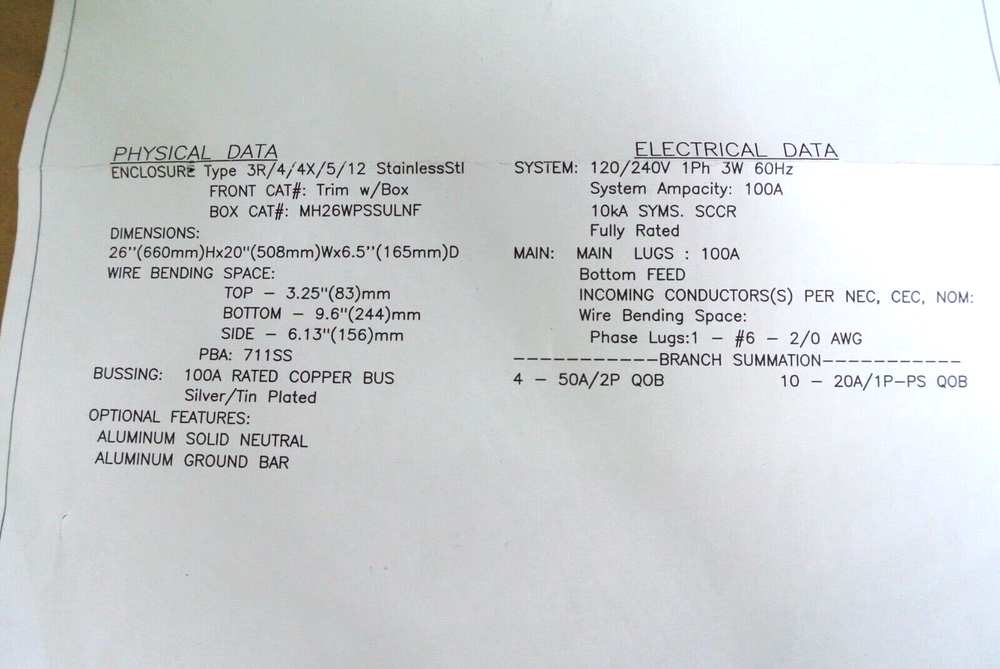 PHYSICAL DATA
ENCLOSURE Type 3R/4/4X/5/12 StainlessStl
FRONT CAT#: Trim w/Box
BOX CAT#: MH26WPSSULNF
DIMENSIONS:
26"(660mm)Hx20"(508mm)Wx6.5"(165mm)D
WIRE BENDING SPACE:
TOP – 3.25"(83)mm
BOTTOM – 9.6"(244)mm
SIDE – 6.13"(156)mm
PBA: 711SS
BUSSING: 100A RATED COPPER BUS
Silver/Tin Plated
OPTIONAL FEATURES:
ALUMINUM SOLID NEUTRAL
ALUMINUM GROUND BAR
ELECTRICAL DATA
SYSTEM: 120/240V 1Ph 3W 60Hz
System Ampacity: 100A
10kA SYMS. SCCR
Fully Rated
MAIN: MAIN LUGS : 100A
Bottom FEED
INCOMING CONDUCTORS(S) PER NEC, CEC, NOM:
Wire Bending Space:
Phase Lugs:1 – #6 – 2/0 AWG
------------BRANCH SUMMATION------------
4 – 50A/2P QOB 10 – 20A/1P–PS QOB